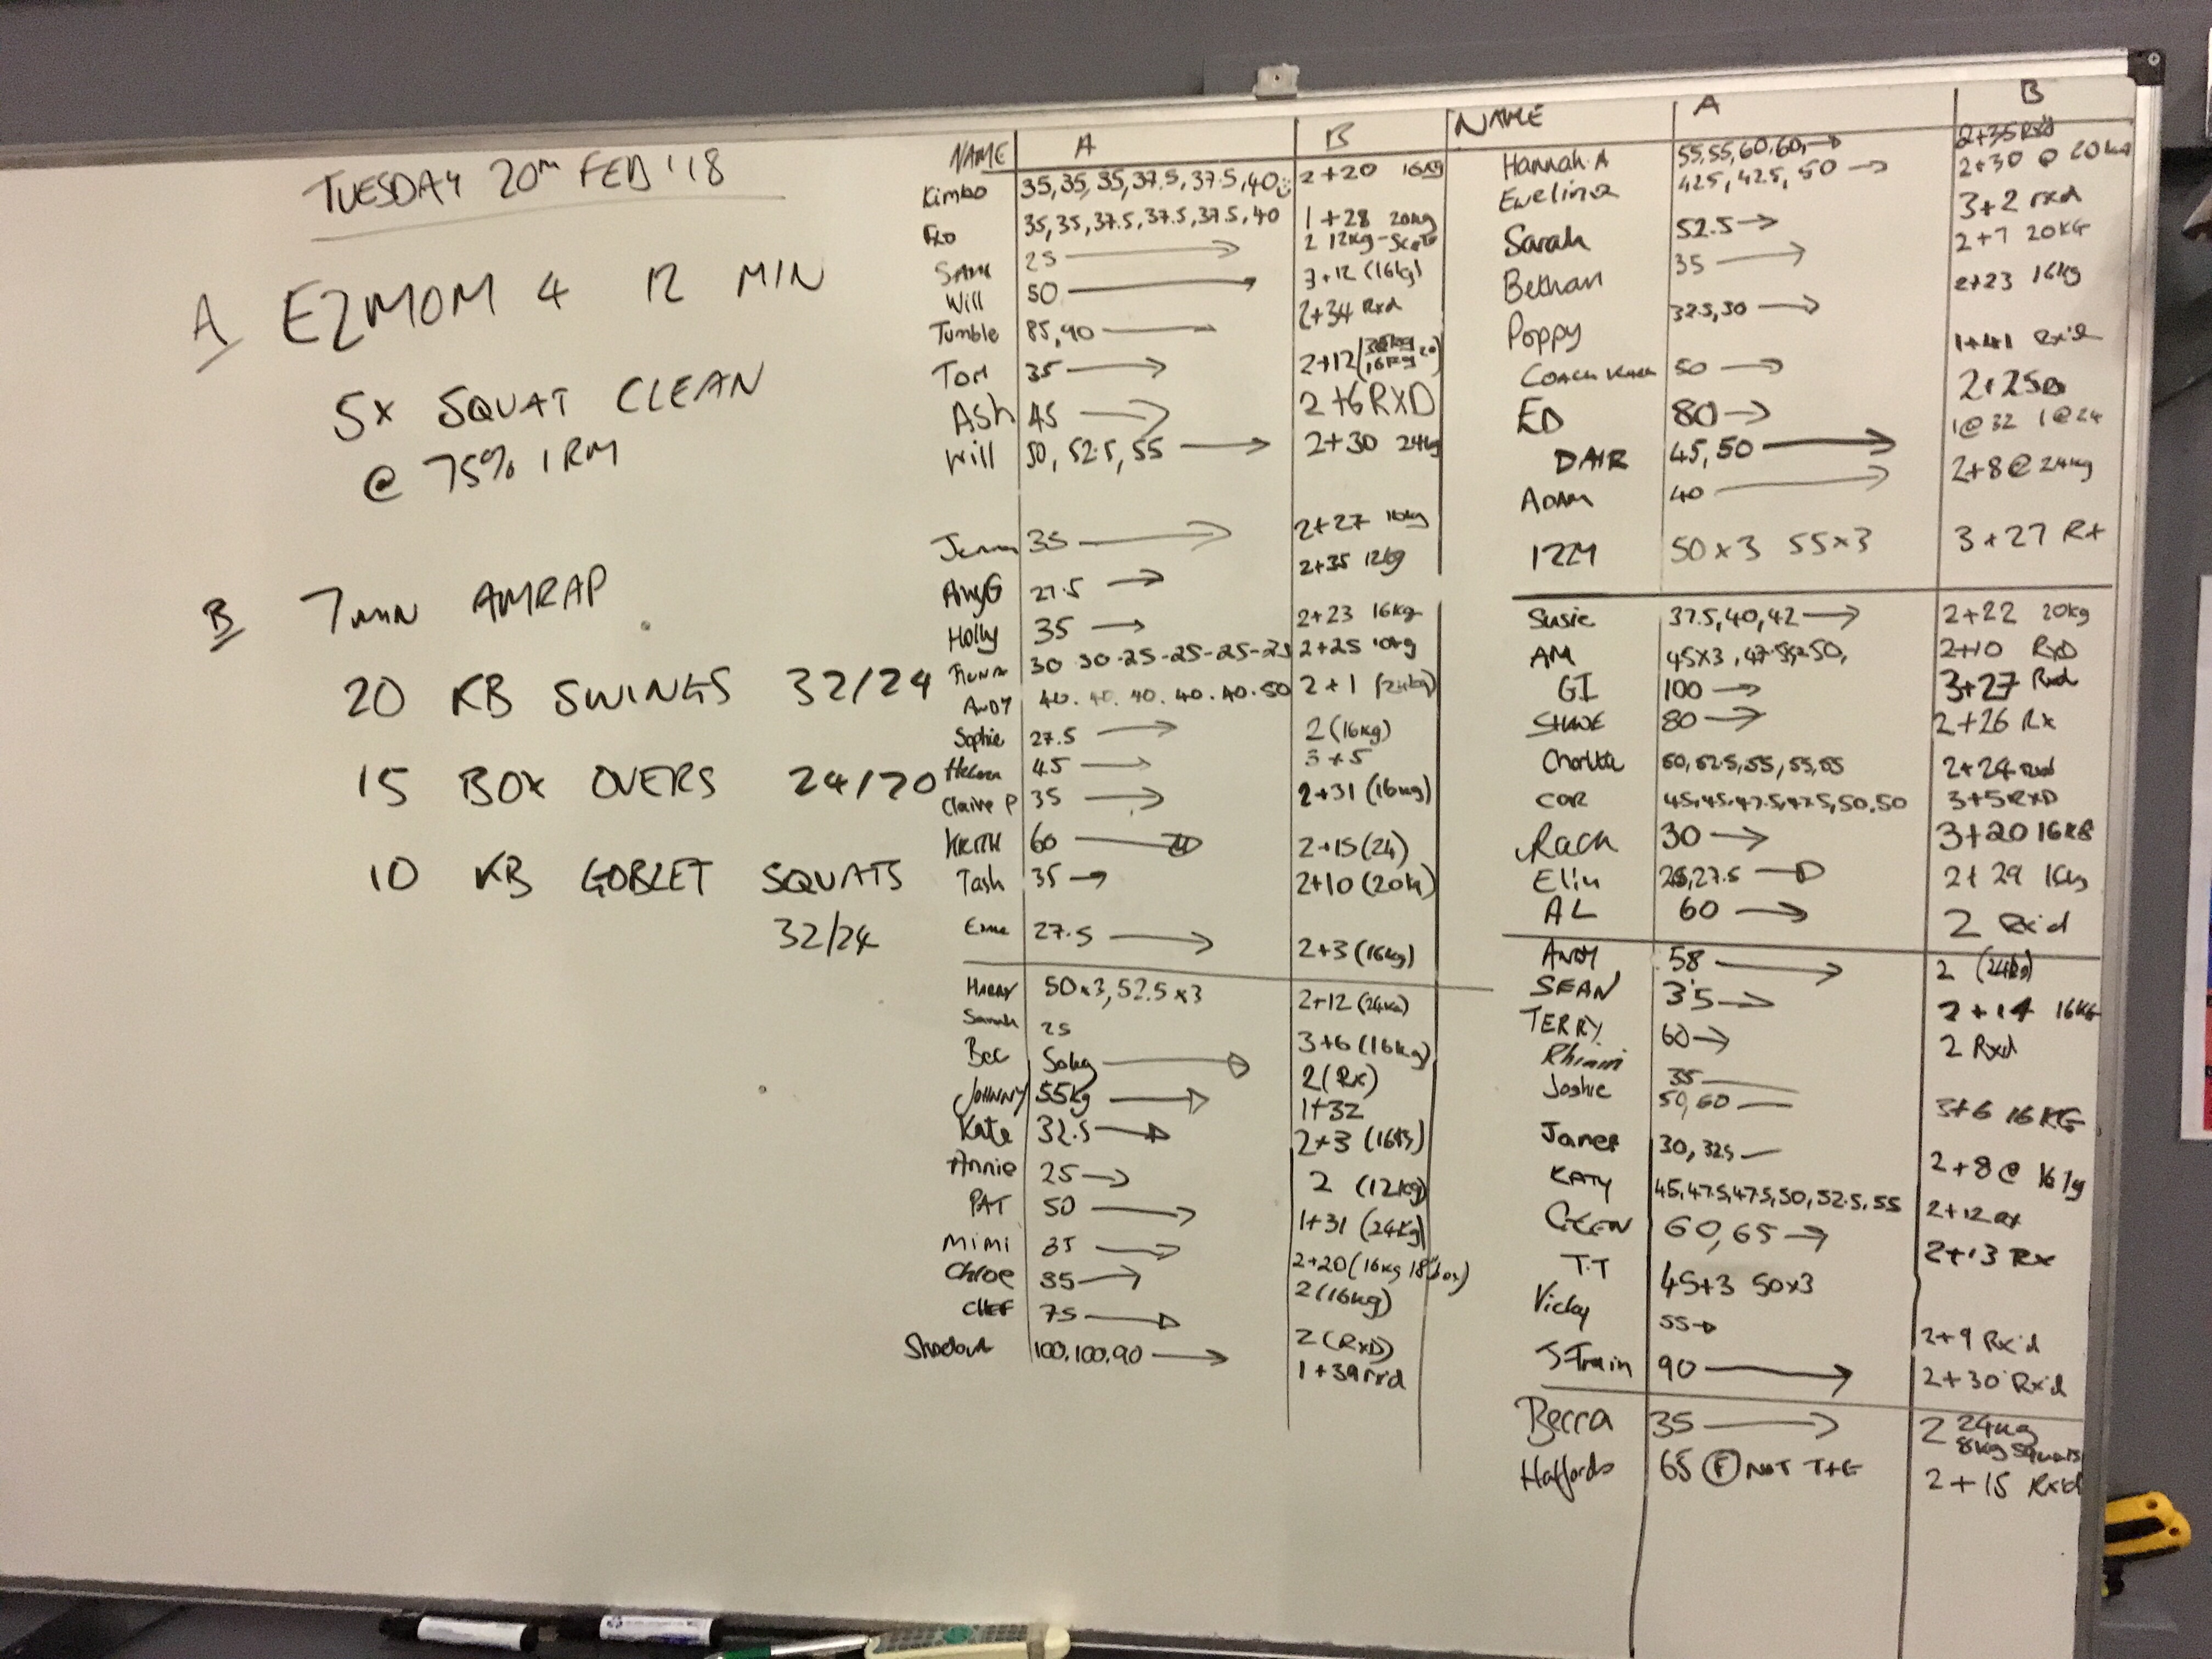 TUESDAY 20TH FEB '18
A E2MOM 4 12 MIN
5X SQUAT CLEAN
@ 75% 1RM
B 7 MIN AMRAP
20 KB SWINGS 32/24
15 BOX OVERS 24/20
10 KB GOBLET SQUATS
32/24
NAME A B
Kimbo 35, 35, 35, 37.5, 37.5, 40 2+20 16kg
Flo 35, 35, 37.5, 37.5, 37.5, 40 1+28 20kg
SAM 25 → 2 12kg
Will 50 → 3+12 (16kg)
Tumble 85, 90 → 2+34 Rxd
Tom 35 → 2+12
Ash 45 → 2+6 RXD
Will 50, 52.5, 55 → 2+30 24kg
35 → 2+27 16kg
AmyG 27.5 → 2+35 12kg
Holly 35 → 2+23 16kg
30 30-25-25-25-25 2+25
ANDY 40. 40. 40. 40. 40. 50 2+1 (24kg)
Sophie 27.5 → 2 (16kg)
45 → 3+5
Claire P 35 → 2+31 (16kg)
KEITH 60 → 2+15 (24)
Tash 35 → 2+10 (20kg)
27.5 → 2+3 (16kg)
HARRY 50x3, 52.5x3 2+12 (24kg)
Sarah 25
Bec 50kg → 3+6 (16kg)
JOHNNY 55kg → 2 (Rx)
Kate 32.5 → 1+32
2+3 (16kg)
Annie 25 → 2 (12kg)
PAT 50 → 1+31 (24kg)
Mimi 35 → 2+20 (16kg 18" box)
Chloe 35 → 2 (16kg)
CHEF 75 → 2 (RxD)
100, 100, 90 → 1+39 rxd
NAME A B
Hannah A 55, 55, 60, 60, → 2+35 Rxd
Ewelina 42.5, 42.5, 50 → 2+30 @ 20kg
Sarah 52.5 → 3+2 rxd
Bethan 35 → 2+7 20KG
Poppy 32.5, 30 → 2+23 16kg
COACH 50 → 1+41 Rx'd
ED 80 → 2+25
DAIR 45, 50 → 1@32 1@24
ADAM 40 → 2+8 @ 24kg
IZZY 50x3 55x3 3+27 Rx
Susie 37.5, 40, 42 → 2+22 20kg
AM 45x3, 2+10 RxD
GI 100 → 3+27 Rxd
80 → 2+26 Rx
50, 52.5, 55, 55, 55 2+24 Rxd
COR 45, 45, 47.5, 47.5, 50, 50 3+5 RxD
Rach 30 → 3+20 16KG
Elin 27.5 → 2+29
AL 60 → 2 Rx'd
ANDY 58 → 2 (24kg)
SEAN 35 → 2+14 16KG
TERRY 60 → 2 Rxd
35
Joshie 50, 60 3+6 16KG
Janet 30, 32.5 2+8 @ 16kg
KATY 45, 47.5, 47.5, 50, 52.5, 55 2+12 rx
60, 65 → 2+13 Rx
T.T 45+3 50x3
Vicky 55 → 2+9 Rx'd
S-Train 90 → 2+30 Rx'd
Becca 35 → 2 24kg
8kg squats
65 (F) NOT T+G 2+15 Rx'd